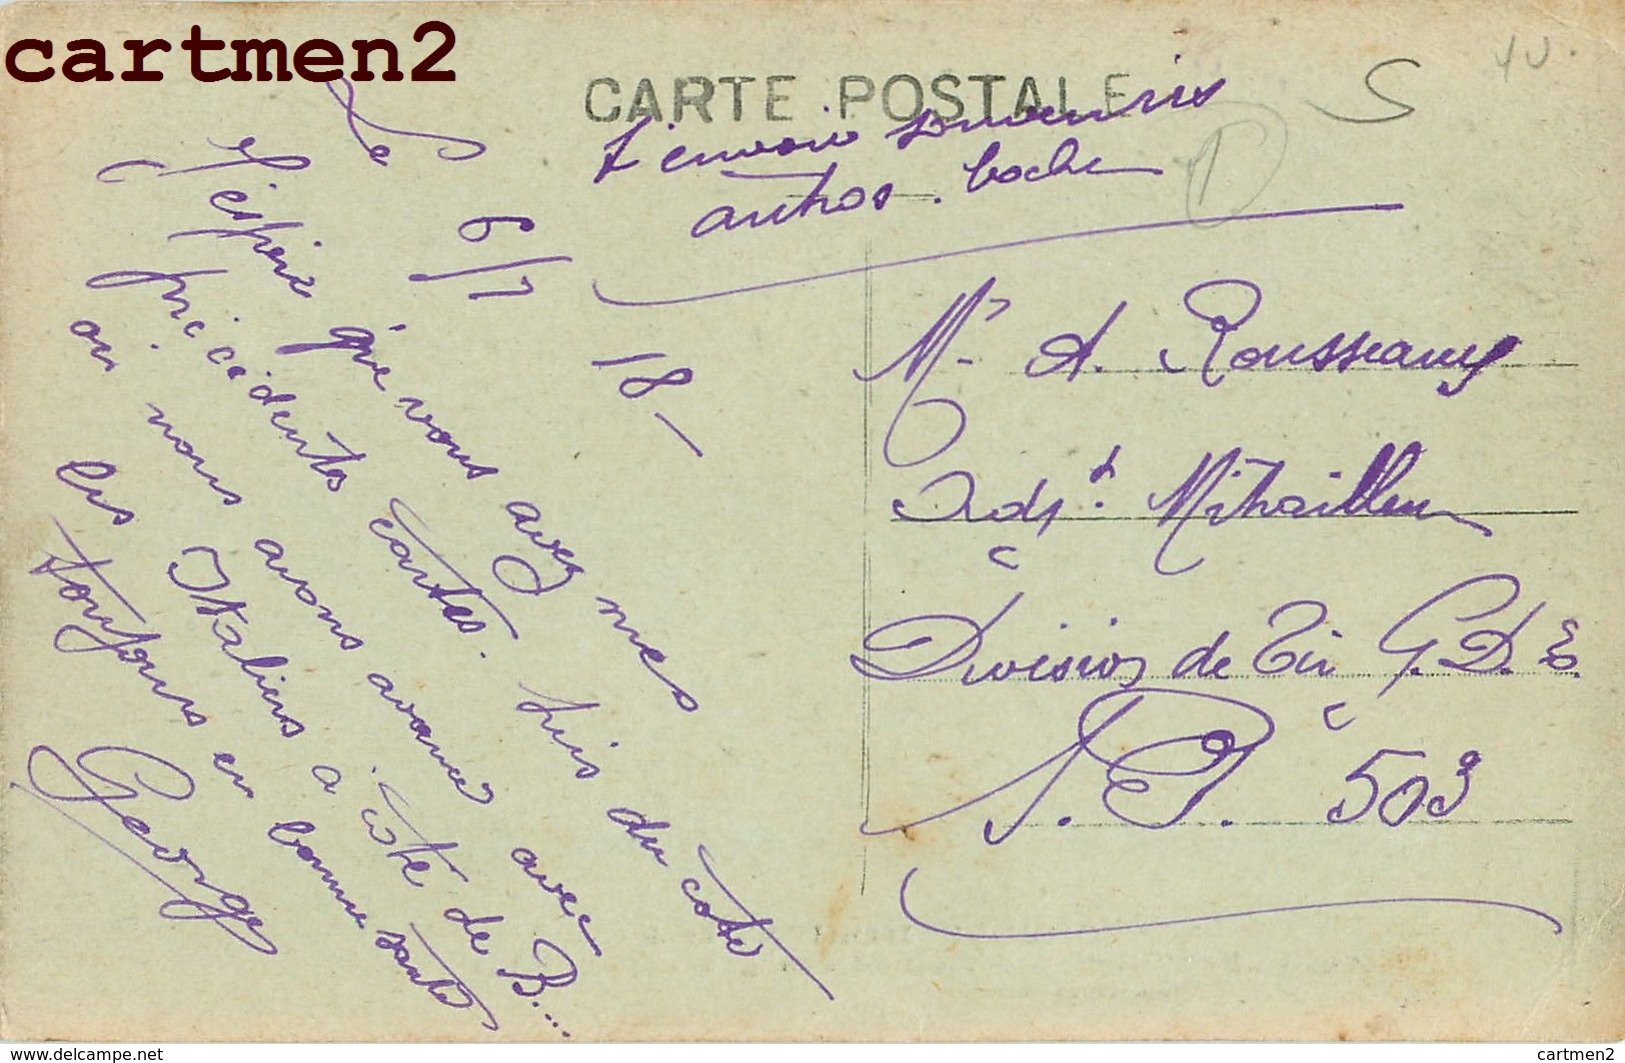 cartmen2
CARTE POSTALE
T'envoie souvenirs
autros. boche
Le 6/7 18 –
J'espère que vous avez mes
précédentes cartes. Suis du coté
où nous avons avancé avec
les Italiens a coté de B...
toujours en bonne santé
George
Mr A. Rousseaux
Adjt Mitrailleur
Division de Tir G.D.E.
S.P. 503
www.delcampe.net
cartmen2